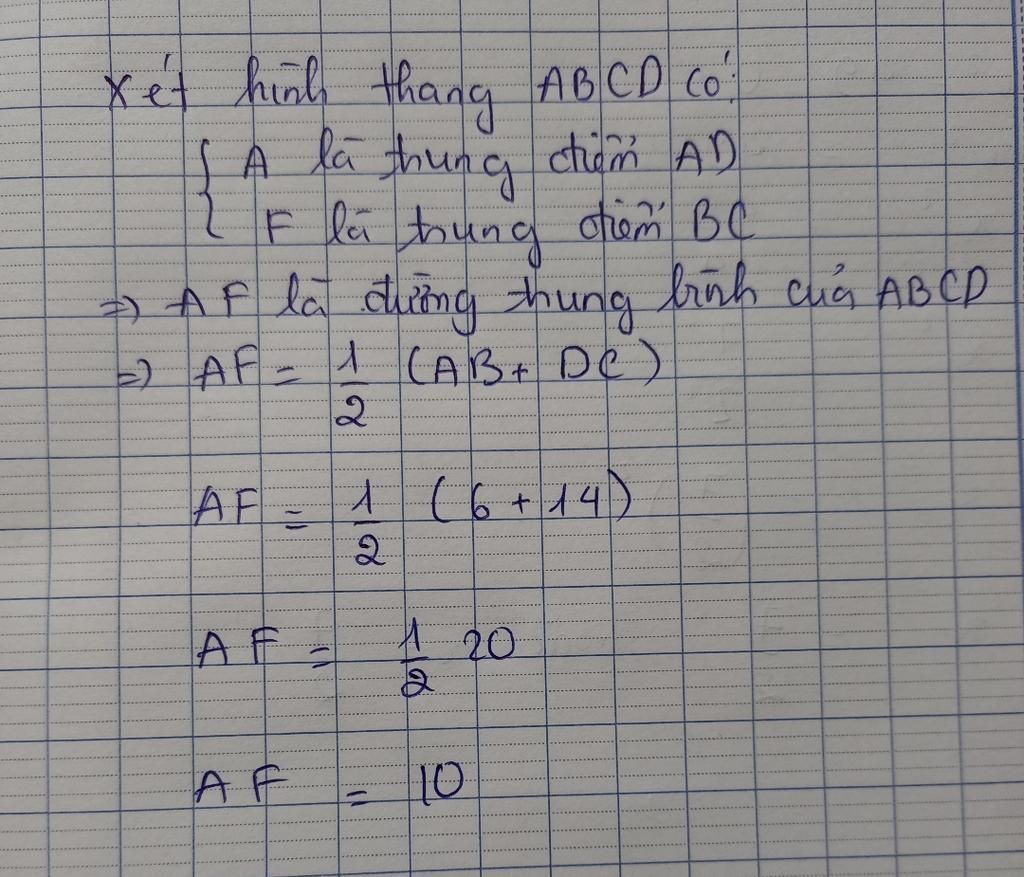 Xét hình thang ABCD có:
{ A là trung điểm AD
F là trung điểm BC
=> AF là đường trung bình của ABCD
=> AF = 1/2 (AB + DC)
AF = 1/2 (6 + 14)
AF = 1/2 20
AF = 10